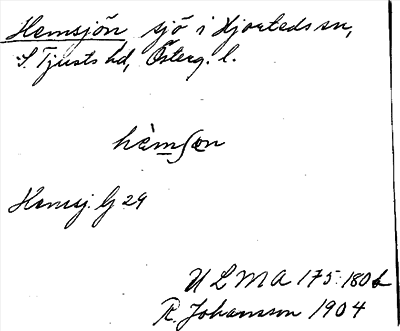 Hemsjön sjö i Hjorteds sn,
S. Tjusts hd, Österg. l.
hèmʃøn
Hemsj. G 29
ULMA 175:180b
R. Johansson 1904